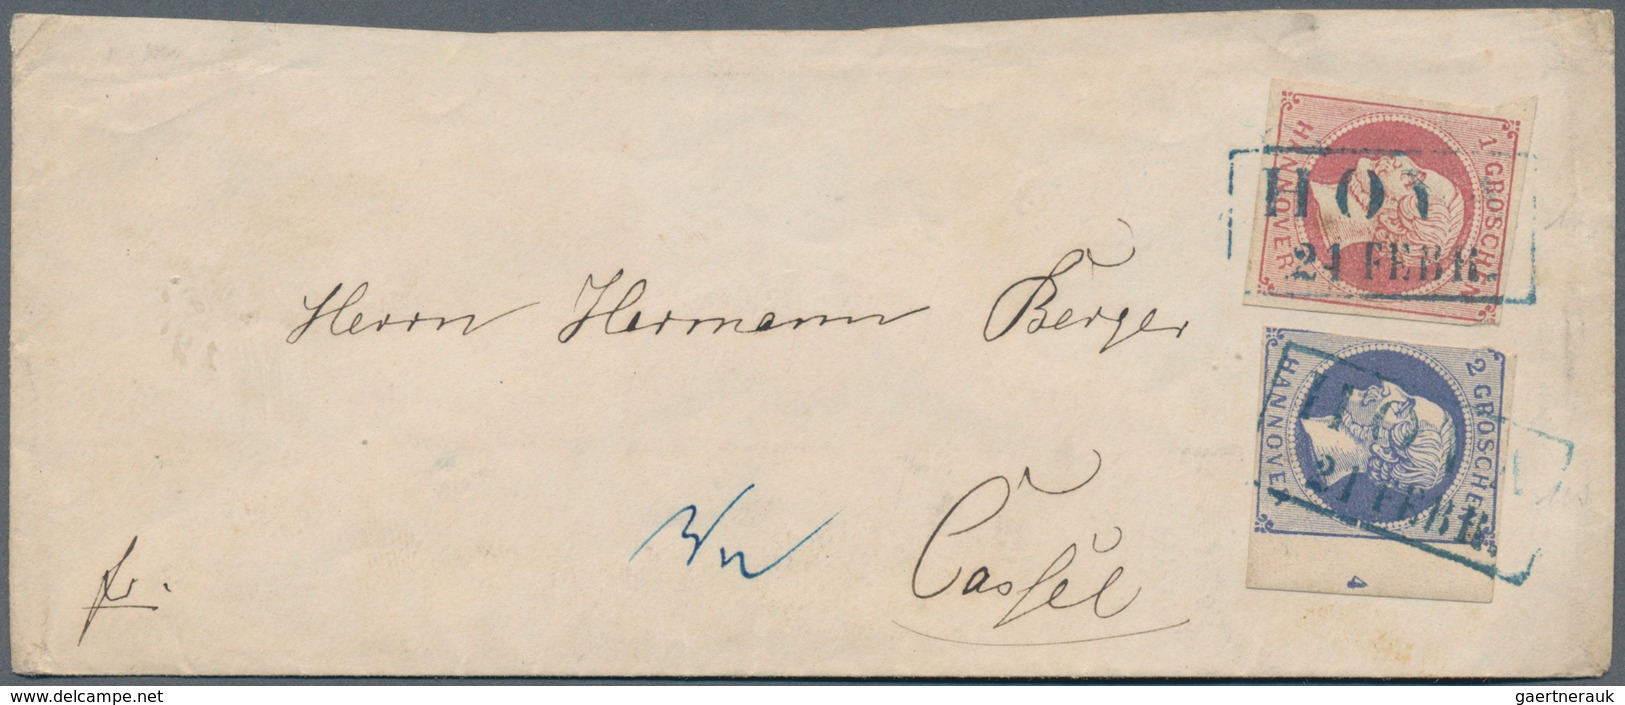 HANNOVER
1 GROSCHEN
HOYA
21 FEBR.
Herrn Hermann Berger
HANNOVER
2 GROSCHEN
HO
21 FEBR.
4
Cassel
fr.
www.delcampe.net
gaertnerauk